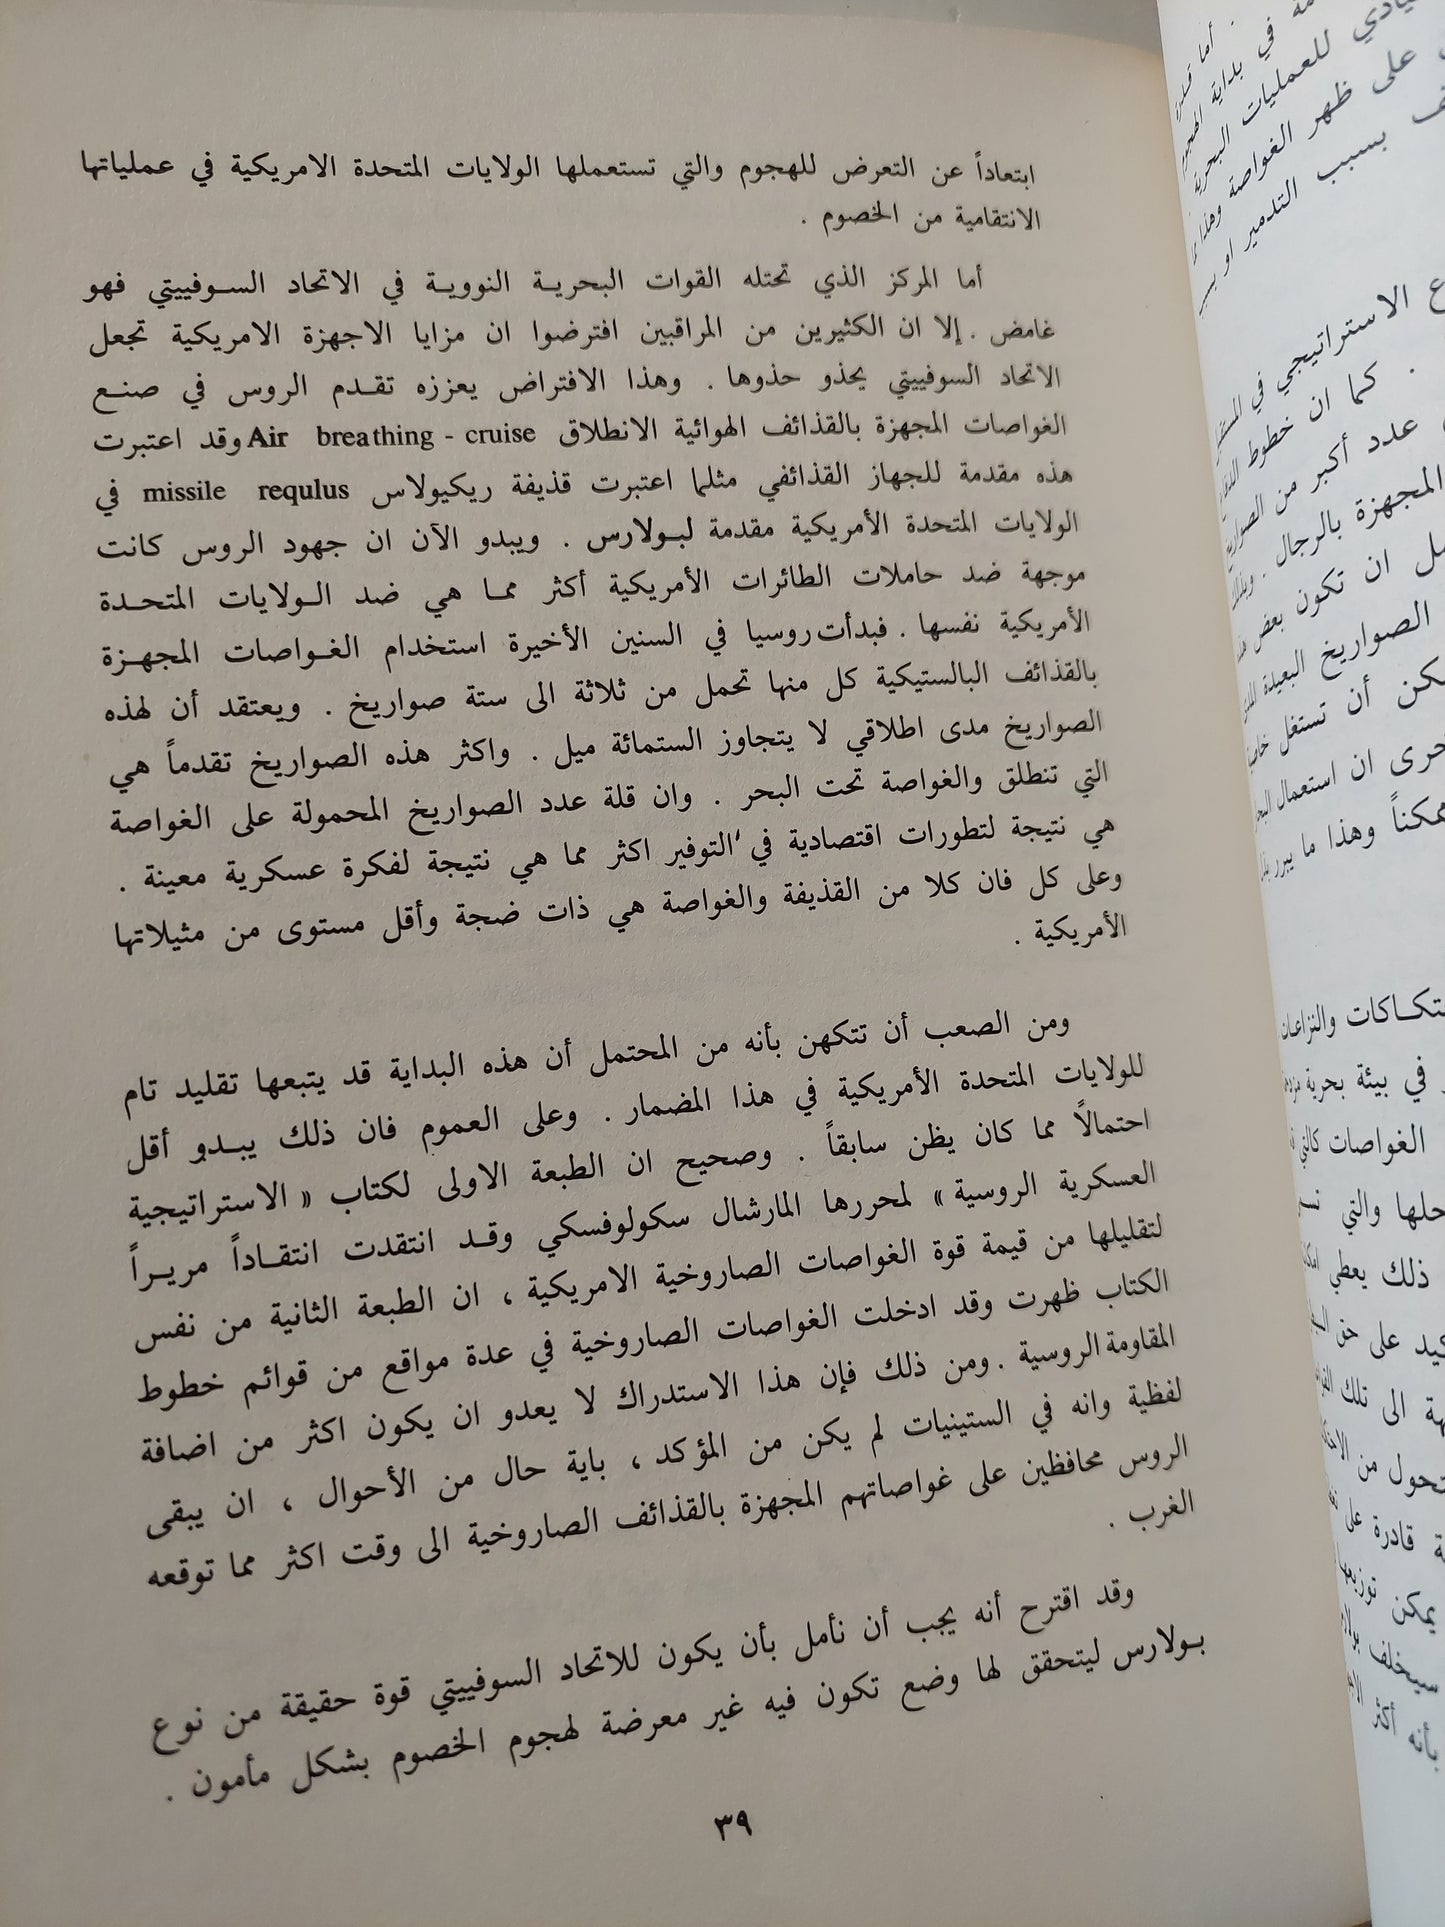 ابتعاداً عن التعرض للهجوم والتي تستعملها الولايات المتحدة الامريكية في عملياتها
الانتقامية من الخصوم .
أما المركز الذي تحتله القوات البحرية النووية في الاتحاد السوفييتي فهو
غامض . إلا ان الكثيرين من المراقبين افترضوا ان مزايا الاجهزة الامريكية تجعل
الاتحاد السوفييتي يحذو حذوها . وهذا الافتراض يعززه تقدم الروس في صنع
الغواصات المجهزة بالقذائف الهوائية الانطلاق Air breathing - cruise وقد اعتبرت
هذه مقدمة للجهاز القذائفي مثلما اعتبرت قذيفة ريكيولاس missile requlus في
الولايات المتحدة الأمريكية مقدمة لبولارس . ويبدو الآن ان جهود الروس كانت
موجهة ضد حاملات الطائرات الأمريكية أكثر مما هي ضد الولايات المتحدة
الأمريكية نفسها . فبدأت روسيا في السنين الأخيرة استخدام الغواصات المجهزة
بالقذائف البالستيكية كل منها تحمل من ثلاثة الى ستة صواريخ . ويعتقد أن لهذه
الصواريخ مدى اطلاقي لا يتجاوز الستمائة ميل . واكثر هذه الصواريخ تقدماً هي
التي تنطلق والغواصة تحت البحر . وان قلة عدد الصواريخ المحمولة على الغواصة
هي نتيجة لتطورات اقتصادية في التوفير اكثر مما هي نتيجة لفكرة عسكرية معينة .
وعلى كل فان كلا من القذيفة والغواصة هي ذات ضجة وأقل مستوى من مثيلاتها
الأمريكية .
ومن الصعب أن تتكهن بأنه من المحتمل أن هذه البداية قد يتبعها تقليد تام
للولايات المتحدة الأمريكية في هذا المضمار . وعلى العموم فان ذلك يبدو أقل
احتمالاً مما كان يظن سابقاً . وصحيح ان الطبعة الاولى لكتاب « الاستراتيجية
العسكرية الروسية » لمحررها المارشال سكولوفسكي وقد انتقدت انتقاداً مريراً
لتقليلها من قيمة قوة الغواصات الصاروخية الامريكية ، ان الطبعة الثانية من نفس
الكتاب ظهرت وقد ادخلت الغواصات الصاروخية في عدة مواقع من قوائم خطوط
المقاومة الروسية . ومن ذلك فإن هذا الاستدراك لا يعدو ان يكون اكثر من اضافة
لفظية وانه في الستينيات لم يكن من المؤكد ، باية حال من الأحوال ، ان يبقى
الروس محافظين على غواصاتهم المجهزة بالقذائف الصاروخية الى وقت اكثر مما توقعه
الغرب .
وقد اقترح أنه يجب أن نأمل بأن يكون للاتحاد السوفييتي قوة حقيقة من نوع
بولارس ليتحقق لها وضع تكون فيه غير معرضة لهجوم الخصوم بشكل مأمون .
٣٩
في بداية
للعمليات البحرية
على ظهر الغواصة
بسبب التدمير او
الاستراتيجي في
. كما ان خطوط
عدد أكبر من
المجهزة بالرجال .
ان تكون بعض
الصواريخ البعيدة
أن تستغل
ان استعمال
وهذا ما يبرر
والنزاعات
في بيئة بحرية
الغواصات كالتي
والتي
ذلك يعطي
على حق
الى تلك
من
قادرة على
يمكن توزيعها
سيخلف
بأنه أكثر